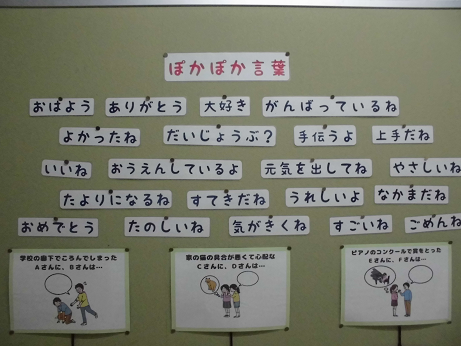 ぽかぽか言葉
おはよう ありがとう 大好き がんばっているね
よかったね だいじょうぶ？ 手伝うよ 上手だね
いいね おうえんしているよ 元気を出してね やさしいね
たよりになるね すてきだね うれしいよ なかまだね
おめでとう たのしいね 気がきくね すごいね ごめんね
学校の廊下でころんでしまった
Aさんに、Bさんは…
家の猫の具合が悪くて心配な
Cさんに、Dさんは…
ピアノのコンクールで賞をとった
Eさんに、Fさんは…